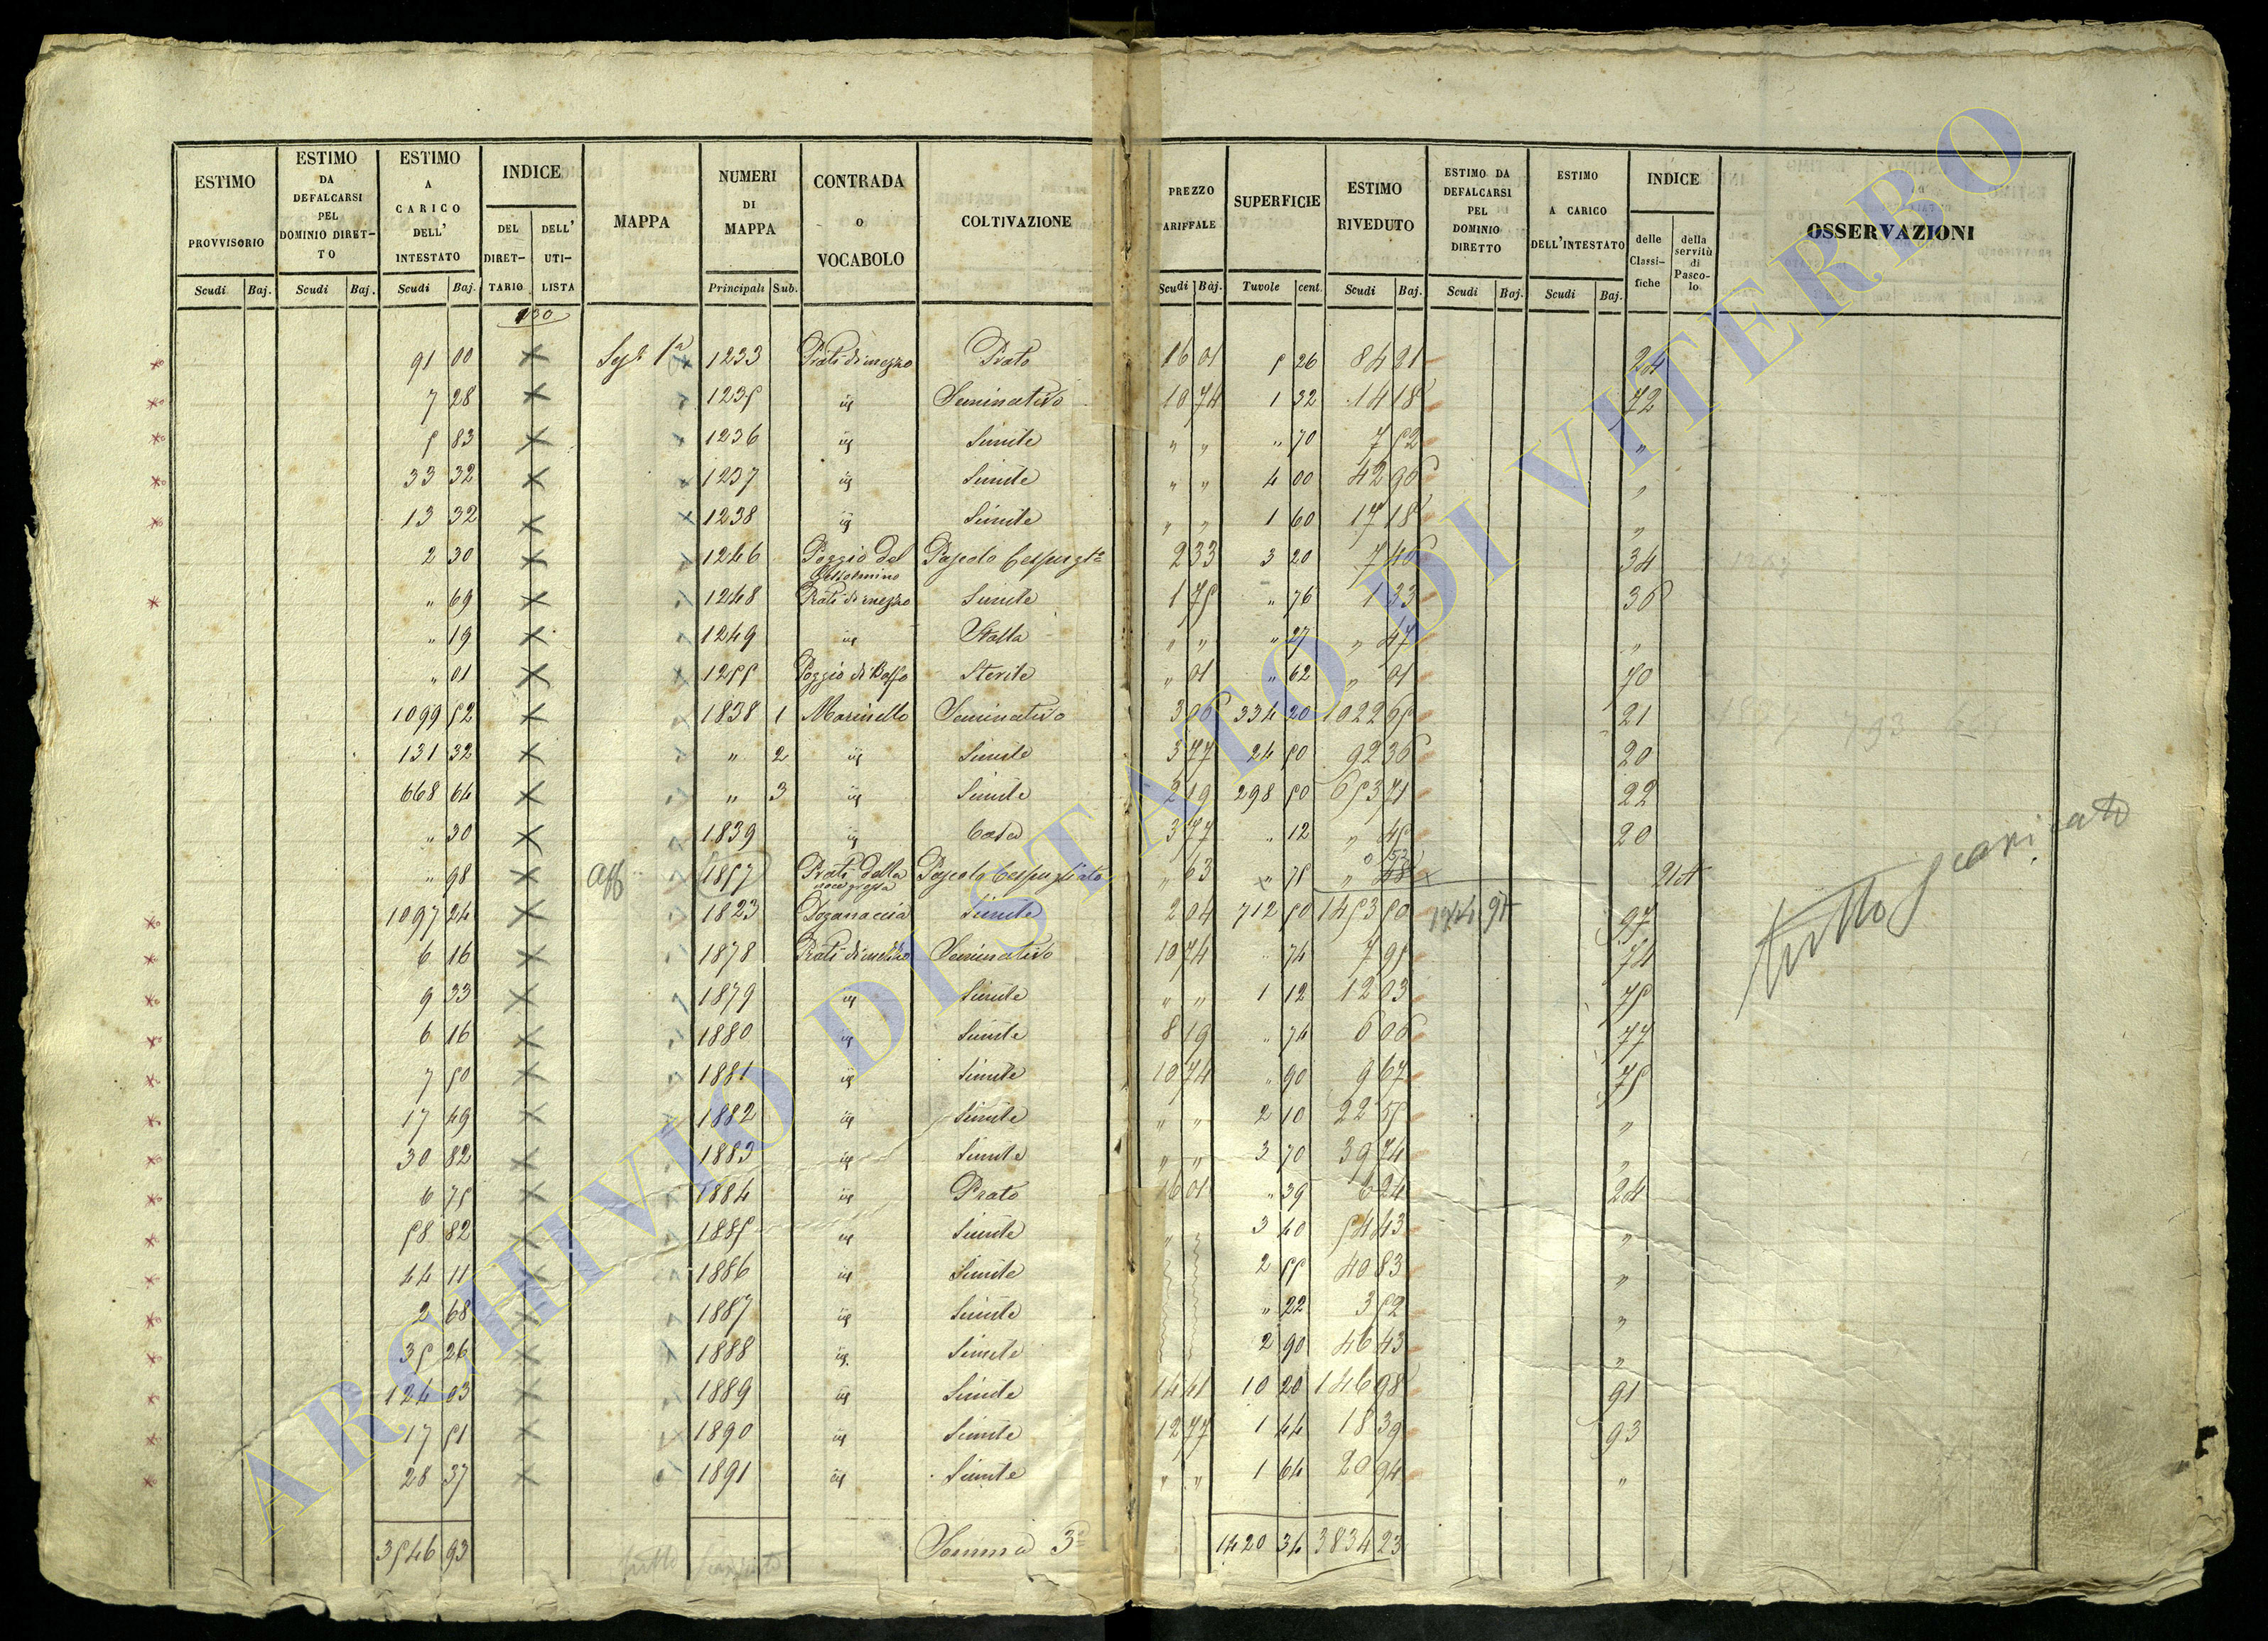 ESTIMO PROVVISORIO Scudi Baj.
ESTIMO DA DEFALCARSI PEL DOMINIO DIRETTO Scudi Baj.
ESTIMO A CARICO DELL' INTESTATO Scudi Baj.
INDICE DEL DIRET- TARIO DELL' UTI- LISTA
MAPPA
NUMERI DI MAPPA Principali Sub.
CONTRADA o VOCABOLO
COLTIVAZIONE
PREZZO ARIFFALE Scudi Baj.
SUPERFICIE Tavole cent.
ESTIMO RIVEDUTO Scudi Baj.
ESTIMO DA DEFALCARSI PEL DOMINIO DIRETTO Scudi Baj.
ESTIMO A CARICO DELL'INTESTATO Scudi Baj.
INDICE delle Classi- fiche della servitù di Pasco- lo
OSSERVAZIONI
91 00 X 1233 Prati di mezzo Prato 16 01 5 26 84 21 24
7 28 X 1235 id Seminativo 10 74 1 32 14 18 72
5 83 X 1236 id Simile " " " 70 7 52 "
33 32 X 1237 id Simile " " 4 00 42 96 "
13 32 X 1238 id Simile " " 1 60 17 18 "
2 30 X 1246 Poggio del Pascolo Cespugto 2 33 3 20 7 46 34
" 69 X 1248 Prati di mezzo Simile 1 75 " 76 1 33 36
" 19 X 1249 id Stalla " " " 27 " 47 "
" 01 X 1255 Poggio di Sterile " 01 " 62 " 01 70
1099 52 X 1838 1 Marinello Seminativo 3 06 334 20 1022 65 21
131 32 X " 2 id Simile 3 77 24 50 92 36 20
668 64 X " 3 id Simile 2 19 298 50 653 71 22
" 30 X 1839 id Casa 3 77 " 12 " 45 20
" 98 X aff 1857 Prati della noce grossa Pascolo Cespugliato " 63 " 75
1097 24 X 1823 Doganaccia Simile 2 04 712 50 1453 50 97
6 16 X 1878 Prati di mezzo Seminativo 10 74 " 74 7 95 74
9 33 X 1879 id Simile " " 1 12 12 03 75
6 16 X 1880 id Simile 8 19 " 74 6 06 77
7 50 X 1881 id Simile 10 74 " 90 9 67 75
17 49 X 1882 id Simile " " 2 10 22 55 "
30 82 X 1883 id Simile " " 3 70 39 74 "
6 75 X 1884 id Prato 16 01 " 39 6 24 24
58 82 X 1885 id Simile " " 3 40 54 43 "
44 11 X 1886 id Simile 2 55 40 83 "
2 68 X 1887 id Simile " 22 3 52 "
35 26 X 1888 id Simile 2 90 46 43 "
124 03 X 1889 id Simile 14 41 10 20 146 98 91
17 51 X 1890 id Simile 12 77 1 44 18 39 93
28 37 X 1891 id Simile " " 1 64 20 94 "
3546 93 Somma 3a 1420 34 3834 23
tutto scaricato
ARCHIVIO DI STATO DI VITERBO